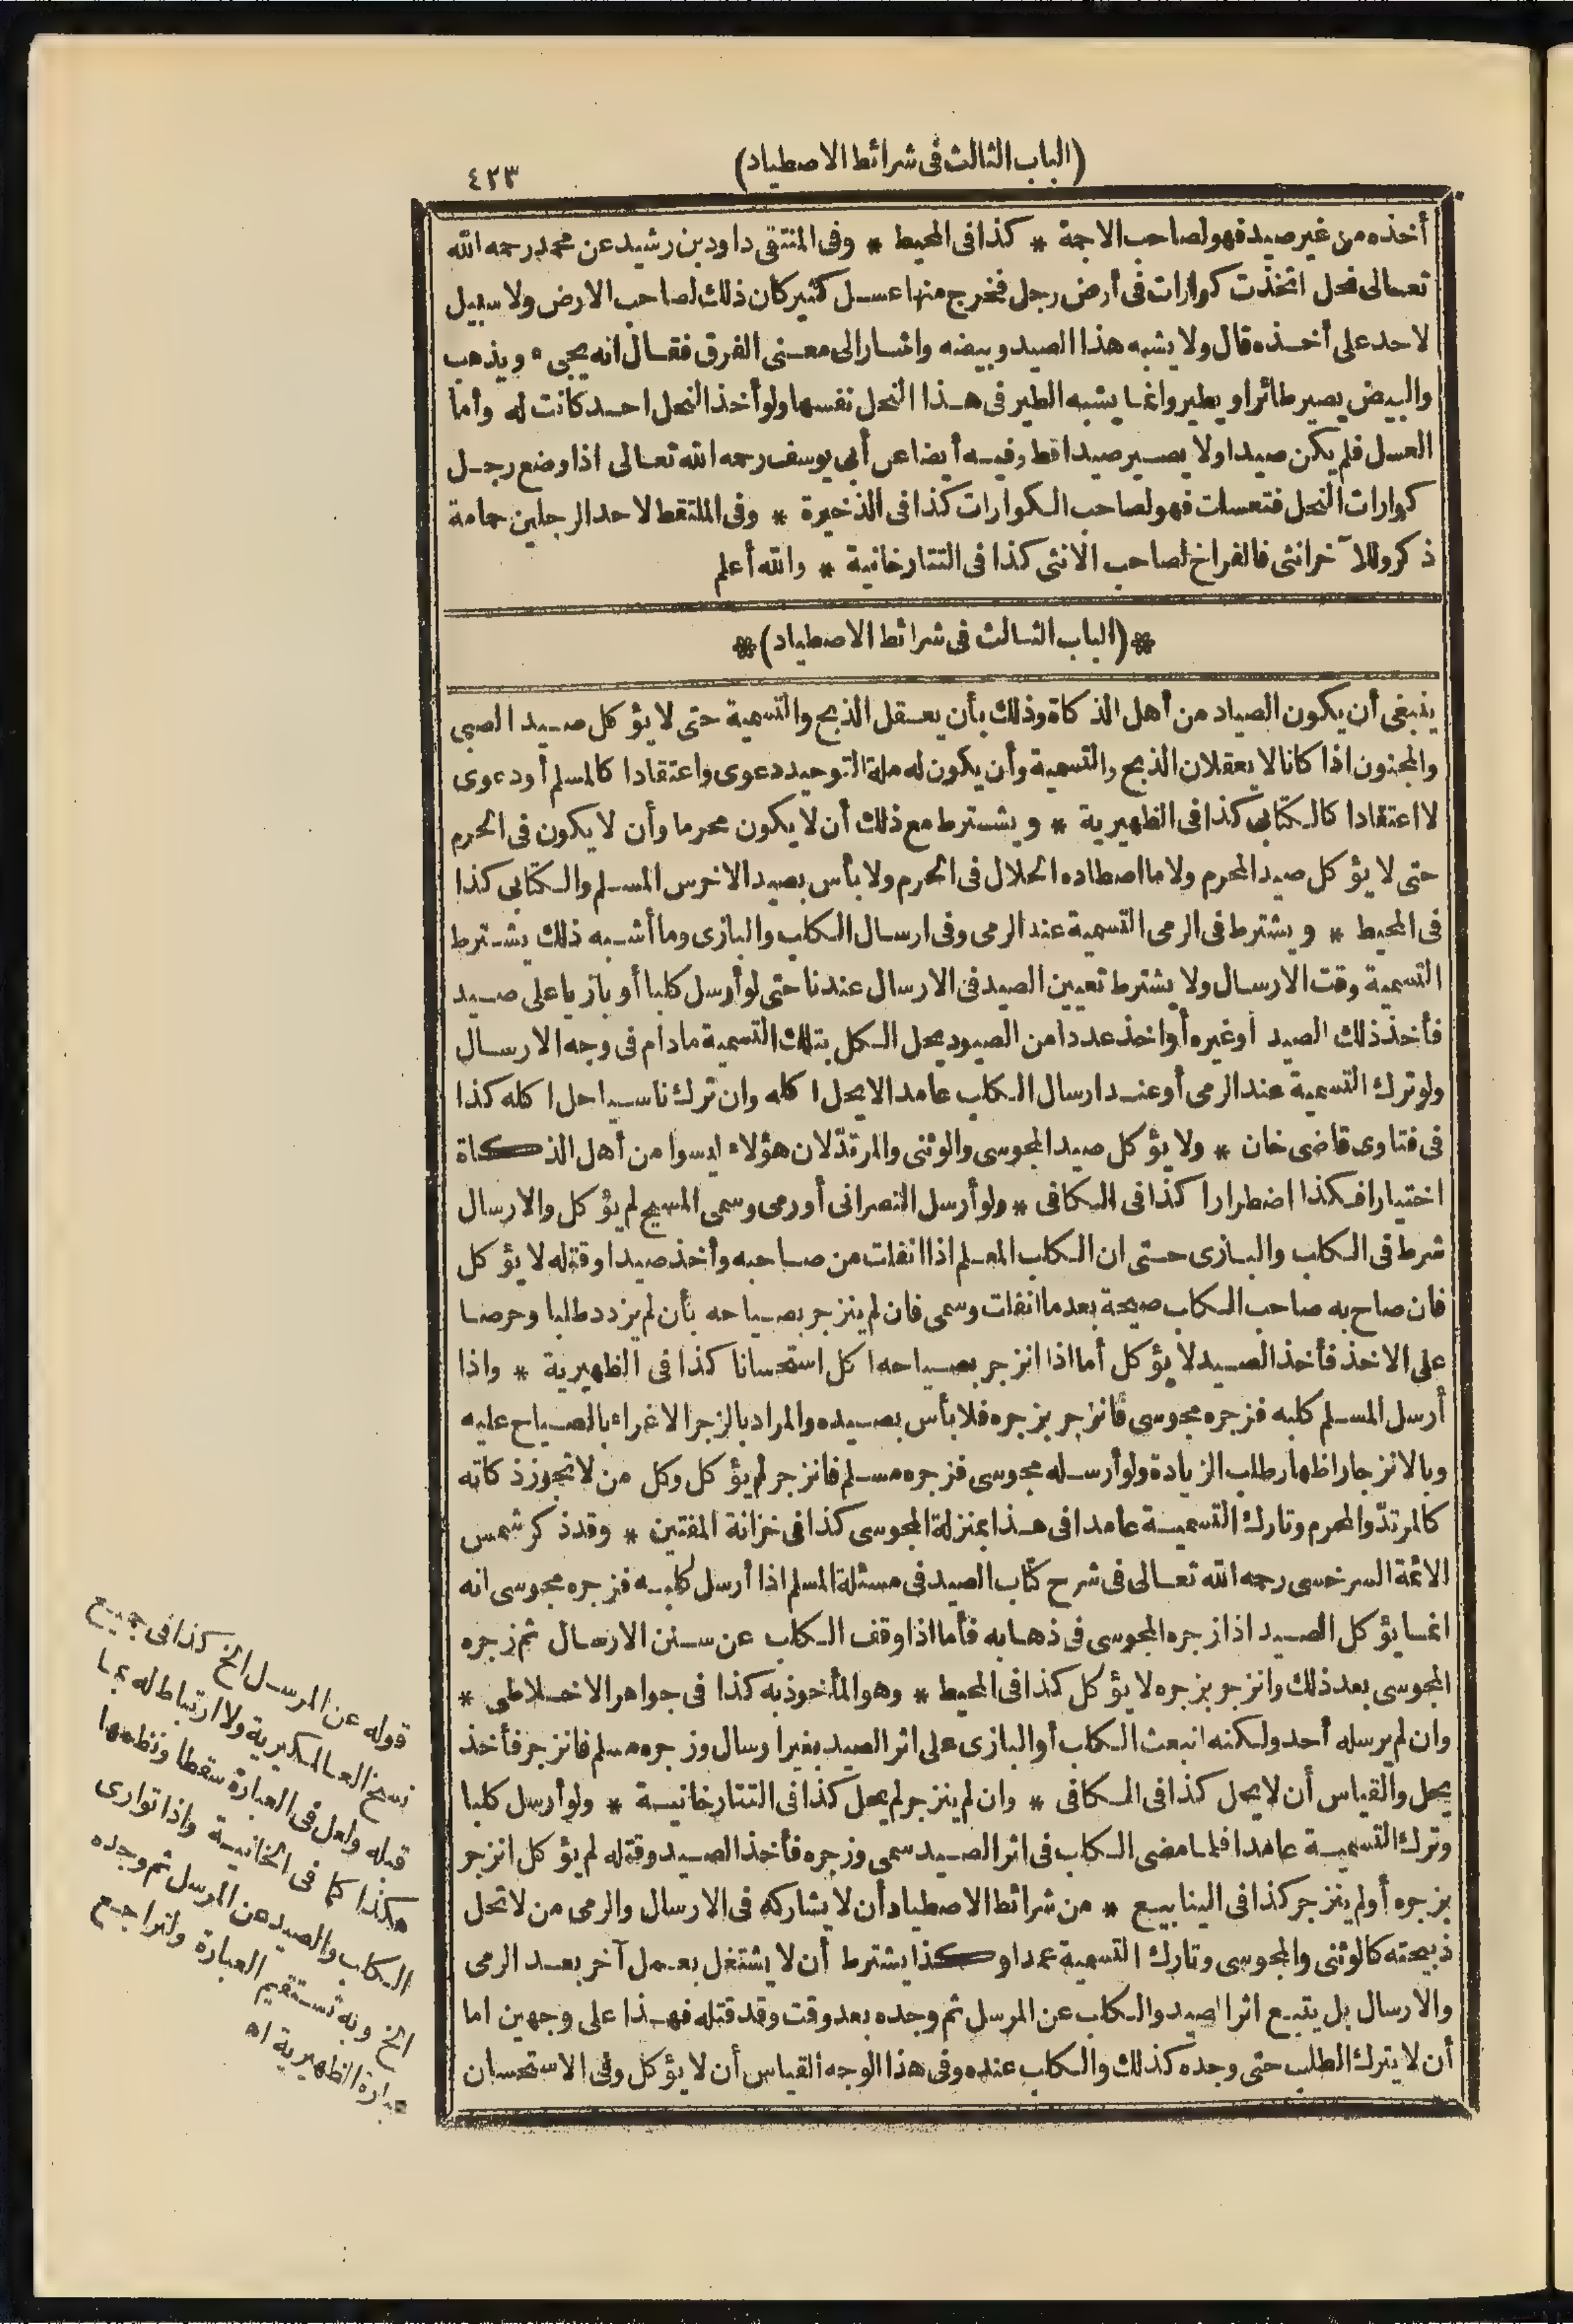 (الباب الثالث فى شرائط الاصطياد)
٤٢٣
أخذه من غير صيد فهو لصاحب الاجة * كذا فى المحيط * وفى المنتقى داود بن رشيد عن محمد رحمه الله
تعالى نحل اتخذت كوارات فى أرض رجل فخرج منها عسل كثير كان ذلك لصاحب الارض ولا سبيل
لاحد على أخذه قال ولا يشبه هذا الصيد وبيضه واشار الى معنى الفرق فقال انه يجىء ويذهب
والبيض يصير طائرا ويطير وانما يشبه الطير فى هذا النحل نفسها ولو أخذ النحل احد كانت له وأما
العسل فلم يكن صيدا ولا يصير صيدا قط وفيه أيضا عن أبى يوسف رحمه الله تعالى اذا وضع رجل
كوارات النحل فتعسلت فهو لصاحب الكوارات كذا فى الذخيرة * وفى الملتقط لاحد الرجلين حمامة
ذكر وللآخر انثى فالفراخ لصاحب الانثى كذا فى التتارخانية * والله أعلم
*(الباب الثالث فى شرائط الاصطياد)*
ينبغى أن يكون الصياد من أهل الذكاة وذلك بأن يعقل الذبح والتسمية حتى لا يؤكل صيد الصبى
والمجنون اذا كانا لا يعقلان الذبح والتسمية وأن يكون له ملة التوحيد دعوى واعتقادا كالمسلم أو دعوى
لا اعتقادا كالكتابى كذا فى الظهيرية * ويشترط مع ذلك أن لا يكون محرما وأن لا يكون فى الحرم
حتى لا يؤكل صيد المحرم ولا ما اصطاده الحلال فى الحرم ولا بأس بصيد الاخرس المسلم والكتابى كذا
فى المحيط * ويشترط فى الرمى التسمية عند الرمى وفى ارسال الكلب والبازى وما أشبه ذلك يشترط
التسمية وقت الارسال ولا يشترط تعيين الصيد فى الارسال عندنا حتى لو أرسل كلبا أو بازيا على صيد
فأخذ ذلك الصيد أو غيره أو اخذ عددا من الصيود يحل الكل بتلك التسمية ما دام فى وجه الارسال
ولو ترك التسمية عند الرمى أو عند ارسال الكلب عامدا لا يحل اكله وان ترك ناسيا حل اكله كذا
فى فتاوى قاضى خان * ولا يؤكل صيد المجوسى والوثنى والمرتد لان هؤلاء ليسوا من أهل الذكاة
اختيارا فكذا اضطرارا كذا فى الكافى * ولو أرسل النصرانى أو رمى وسمى المسيح لم يؤكل والارسال
شرط فى الكلب والبازى حتى ان الكلب المعلم اذا انفلت من صاحبه وأخذ صيدا وقتله لا يؤكل
فان صاح به صاحب الكلب صيحة بعد ما انفلت وسمى فان لم ينزجر بصياحه بأن لم يزدد طلبا وحرصا
على الاخذ فأخذ الصيد لا يؤكل أما اذا انزجر بصياحه اكل استحسانا كذا فى الظهيرية * واذا
أرسل المسلم كلبه فزجره مجوسى فانزجر بزجره فلا بأس بصيده والمراد بالزجر الاغراء بالصياح عليه
وبالانزجار اظهار طلب الزيادة ولو أرسله مجوسى فزجره مسلم فانزجر لم يؤكل وكل من لا تجوز ذكاته
كالمرتد والمحرم وتارك التسمية عامدا فى هذا بمنزلة المجوسى كذا فى خزانة المفتين * وقد ذكر شمس
الائمة السرخسى رحمه الله تعالى فى شرح كتاب الصيد فى مسئلة المسلم اذا أرسل كلبه فزجره مجوسى انه
انما يؤكل الصيد اذا زجره المجوسى فى ذهابه فأما اذا وقف الكلب عن سنن الارسال ثم زجره
المجوسى بعد ذلك وانزجر بزجره لا يؤكل كذا فى المحيط * وهو المأخوذ به كذا فى جواهر الاخلاطى *
وان لم يرسله أحد ولكنه انبعث الكلب أو البازى على اثر الصيد بغير ارسال وزجره مسلم فانزجر فأخذ
يحل والقياس أن لا يحل كذا فى الكافى * وان لم ينزجر لم يحل كذا فى التتارخانية * ولو أرسل كلبا
وترك التسمية عامدا فلما مضى الكلب فى اثر الصيد سمى وزجره فأخذ الصيد وقتله لم يؤكل انزجر
بزجره أو لم ينزجر كذا فى الينابيع * من شرائط الاصطياد أن لا يشاركه فى الارسال والرمى من لا تحل
ذبيحته كالوثنى والمجوسى وتارك التسمية عمدا وكذا يشترط أن لا يشتغل بعمل آخر بعد الرمى
والارسال بل يتبع اثر الصيد والكلب عن المرسل ثم وجده بعد وقت وقد قتله فهذا على وجهين اما
أن لا يترك الطلب حتى وجده كذلك والكلب عنده وفى هذا الوجه القياس أن لا يؤكل وفى الاستحسان
قوله عن المرسل الخ كذا فى جميع
نسخ العالمكيرية ولا ارتباط له بما
قبله ولعل فى العبارة سقطا ونظمها
هكذا كما فى الخانية واذا توارى
الكلب والصيد عن المرسل ثم وجده
الخ وبه تستقيم العبارة ولتراجع
عبارة الظهيرية اه